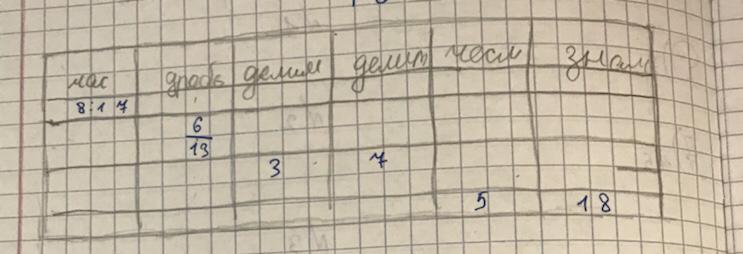 час дробь делим делит числ знам
8:17
6
13
3 7
5 18